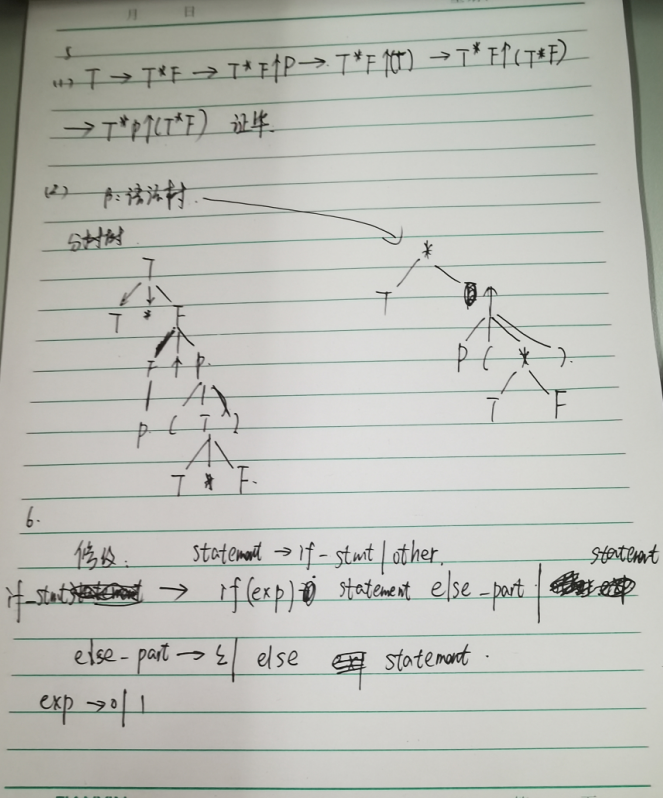 月 日
5
(1) T → T*F → T*F↑P → T*F↑(T) → T*F↑(T*F)
→ T*P↑(T*F) 证毕.
(2) 语法树.
分析树
T
T * F
F ↑ P.
P. ( T )
T * F.
*
T ↑
P ( * ).
T F
6.
修改: statement → if-stmt | other.
statement
if_stmt → if(exp) statement else_part |
else-part → ε | else statement.
exp → 0 | 1